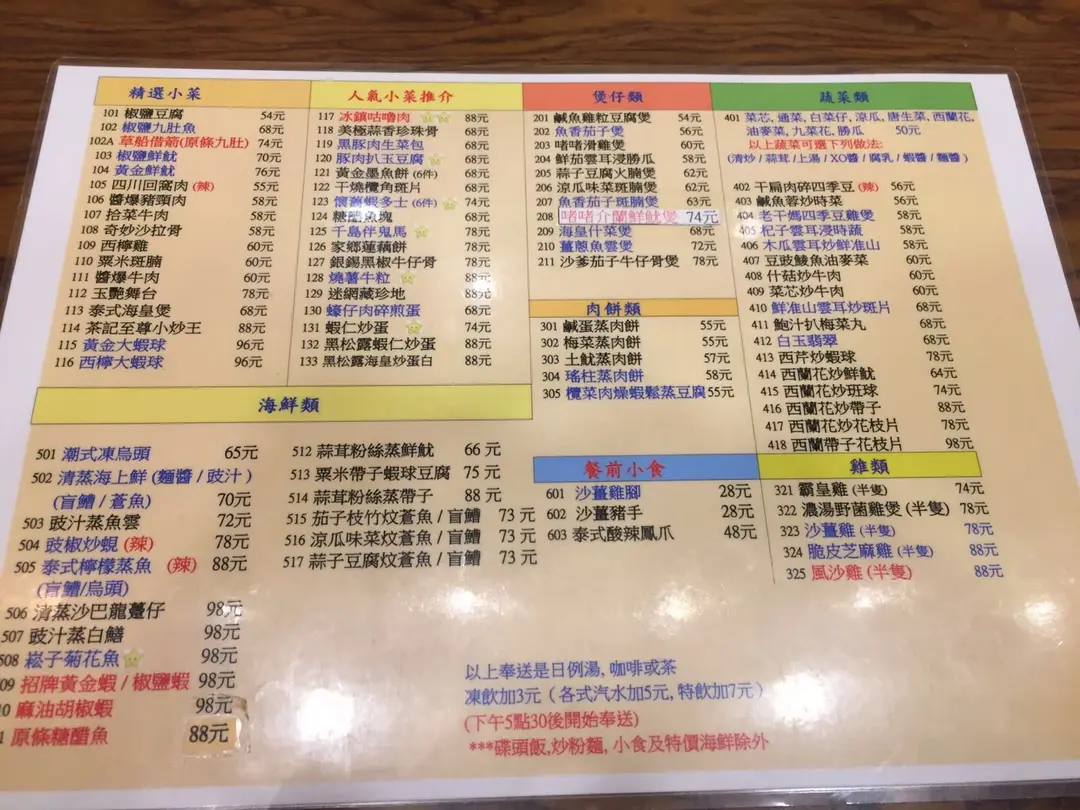 精選小菜
101 椒鹽豆腐 54元
102 椒鹽九肚魚 68元
102A 草船借箭(原條九肚) 74元
103 椒鹽鮮魷 70元
104 黃金鮮魷 76元
105 四川回窩肉 (辣) 55元
106 醬爆豬頭肉 58元
107 拾菜牛肉 58元
108 奇妙沙拉骨 58元
109 西檸雞 60元
110 粟米斑腩 60元
111 醬爆牛肉 60元
112 玉艷舞台 78元
113 泰式海皇煲 68元
114 茶記至尊小炒王 88元
115 黃金大蝦球 96元
116 西檸大蝦球 96元
人氣小菜推介
117 冰鎮咕嚕肉 88元
118 美極蒜香珍珠骨 68元
119 黑豚肉生菜包 68元
120 豚肉扒玉豆腐 68元
121 黃金墨魚餅 (6件) 68元
122 干燒欖角斑片 68元
123 懷舊蝦多士 (6件) 74元
124 糖醋魚塊 68元
125 千島伴鬼馬 78元
126 家鄉蓮藕餅 78元
127 銀錫黑椒牛仔骨 78元
128 燒薯牛粒 88元
129 迷網藏珍地 88元
130 蠔仔肉碎煎蛋 68元
131 蝦仁炒蛋 74元
132 黑松露蝦仁炒蛋 88元
133 黑松露海皇炒蛋白 88元
煲仔類
201 鹹魚雞粒豆腐煲 54元
202 魚香茄子煲 56元
203 啫啫滑雞煲 60元
204 鮮茄雲耳浸勝瓜 58元
205 蒜子豆腐火腩煲 62元
206 涼瓜味菜斑腩煲 62元
207 魚香茄子斑腩煲 63元
208 啫啫介蘭鮮魷煲 74元
209 海皇什菜煲 68元
210 薑蔥魚雲煲 72元
211 沙爹茄子牛仔骨煲 78元
肉餅類
301 鹹蛋蒸肉餅 55元
302 梅菜蒸肉餅 55元
303 土魷蒸肉餅 57元
304 瑤柱蒸肉餅 58元
305 欖菜肉燥蝦鬆蒸豆腐 55元
蔬菜類
401 菜芯, 通菜, 白菜仔, 涼瓜, 唐生菜, 西蘭花,
油麥菜, 九菜花, 勝瓜 50元
以上蔬菜可選下列做法:
(清炒 / 蒜茸 /上湯 / XO醬 / 腐乳 / 蝦醬 / 麵醬 )
402 干扁肉碎四季豆 (辣) 56元
403 鹹魚蓉炒時菜 56元
404 老干媽四季豆雞煲 58元
405 杞子雲耳浸時蔬 58元
406 木瓜雲耳炒鮮准山 56元
407 豆豉鯪魚油麥菜 60元
408 什菇炒牛肉 60元
409 菜芯炒牛肉 60元
410 鮮准山雲耳炒斑片 68元
411 鮑汁扒梅菜丸 68元
412 白玉翡翠 68元
413 西芹炒蝦球 78元
414 西蘭花炒鮮魷 64元
415 西蘭花炒班球 74元
416 西蘭花炒帶子 88元
417 西蘭花炒花枝片 78元
418 西蘭帶子花枝片 98元
海鮮類
501 潮式凍烏頭 65元
502 清蒸海上鮮 (麵醬 / 豉汁 )
(盲鰽 / 蒼魚) 70元
503 豉汁蒸魚雲 72元
504 豉椒炒蜆 (辣) 78元
505 泰式檸檬蒸魚 (辣) 88元
(盲鰽/烏頭)
506 清蒸沙巴龍躉仔 98元
507 豉汁蒸白鱔 98元
508 崧子菊花魚 98元
09 招牌黃金蝦 / 椒鹽蝦 98元
10 麻油胡椒蝦 98元
1 原條糖醋魚 88元
512 蒜茸粉絲蒸鮮魷 66 元
513 粟米帶子蝦球豆腐 75 元
514 蒜茸粉絲蒸帶子 88 元
515 茄子枝竹炆蒼魚 / 盲鰽 73 元
516 涼瓜味菜炆蒼魚 / 盲鰽 73 元
517 蒜子豆腐炆蒼魚 / 盲鰽 73 元
餐前小食
601 沙薑雞腳 28元
602 沙薑豬手 28元
603 泰式酸辣鳳爪 48元
雞類
321 霸皇雞 (半隻) 74元
322 濃湯野菌雞煲 (半隻) 78元
323 沙薑雞 (半隻) 78元
324 脆皮芝麻雞 (半隻) 88元
325 風沙雞 (半隻) 88元
以上奉送是日例湯, 咖啡或茶
凍飲加3元 ( 各式汽水加5元, 特飲加7元 )
(下午5點30後開始奉送)
***碟頭飯,炒粉麵, 小食及特價海鮮除外